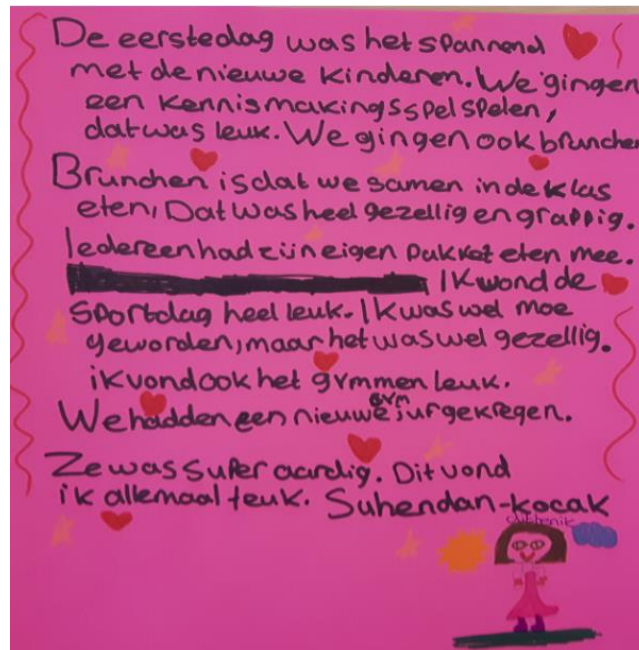 De eerstedag was het spannend
met de nieuwe kinderen. We gingen
een kennismakingsspel spelen,
dat was leuk. We gingen ook brunche
Brunchen is dat we samen in de klas
eten, Dat was heel gezellig en grappig.
Iedereen had zijn eigen pakket eten mee.
Ik wond de
sportdag heel leuk. Ik was wel moe
geworden, maar het was wel gezellig.
ik vond ook het gymmen leuk.
We hadden een nieuwe gym jur gekregen.
Ze was super aardig. Dit vond
ik allemaal leuk. Suhendan-kocak
dit ben ik